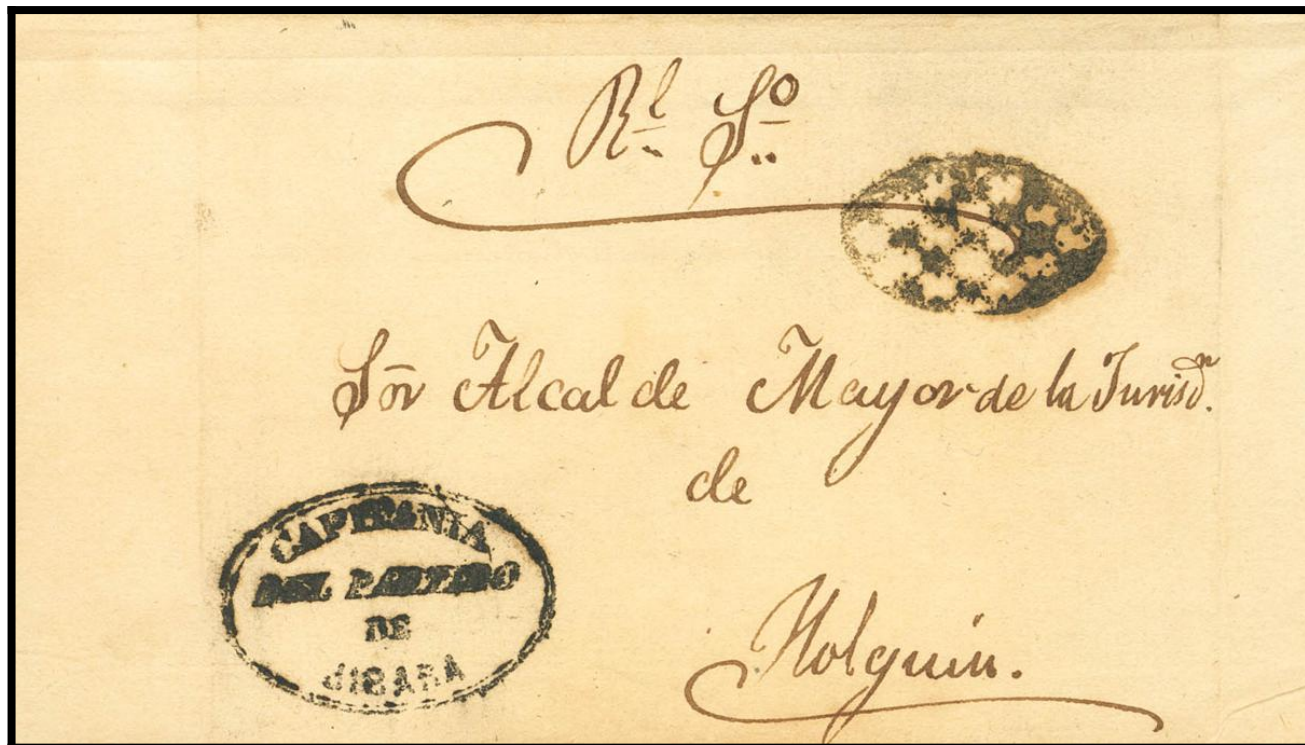 Rl So
Sõr Alcalde Mayor de la Jurisdn.
de
Holguín.
CAPITANIA
DEL PARTIDO
DE
JIBARA